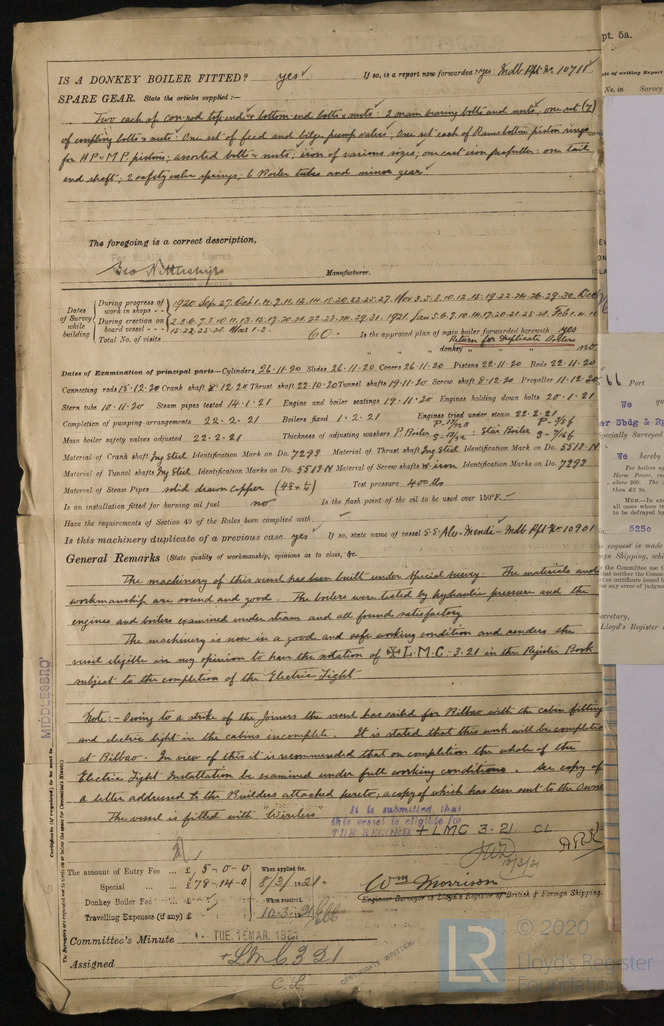 IS A DONKEY BOILER FITTED? yes If so, is a report now forwarded? yes Mdb Rpt No. 10711
SPARE GEAR. State the articles supplied:—
Two each of con-rod top end & bottom end bolts & nuts: 2 main bearing bolts and nuts, one set (7)
of coupling bolts & nuts: One set of feed and bilge pump valves, One set each of Ramsbottom piston rings
for H.P. & M.P. pistons; assorted bolts & nuts; iron of various sizes; one cast iron propeller: one tail
end shaft; 2 safety valve springs; 6 Boiler tubes and minor gear
The foregoing is a correct description,
Manufacturer.
Dates of Survey while building
During progress of work in shops - - 1920 Sep. 27. Oct 1. 4. 7. 11. 12. 14. 18. 20. 22. 25. 27. Nov 3. 5. 8. 10. 12. 15. 19. 22. 24. 26. 29. 30. Dec
During erection on board vessel - - - 2. 3. 6. 7. 8. 10. 11. 13. 15. 17. 20. 22. 23. 24. 29. 31. 1921 Jan 5. 6. 7. 10. 11. 14. 17. 20. 21. 25. 28. Feb 1. 4. 10
15. 22. 25. 28. Mar 1. 2.
Total No. of visits 60. Is the approved plan of main boiler forwarded herewith yes
Return for Duplicate Boilers
" " " donkey " " " no
Dates of Examination of principal parts—Cylinders 26.11.20 Slides 26.11.20 Covers 26.11.20 Pistons 22.11.20 Rods 22.11.20
Connecting rods 15.12.20 Crank shaft 8.12.20 Thrust shaft 22.10.20 Tunnel shafts 19.11.20 Screw shaft 8.12.20 Propeller 11.12.20
Stern tube 10.11.20 Steam pipes tested 14.1.21 Engine and boiler seatings 19.11.20 Engines holding down bolts 20.1.21
Completion of pumping arrangements 22.2.21 Boilers fixed 1.2.21 Engines tried under steam 22.2.21
Main boiler safety valves adjusted 22.2.21 Thickness of adjusting washers P Boiler Star Boiler
Material of Crank shaft Ing Steel Identification Mark on Do. 7293 Material of Thrust shaft Ing Steel Identification Mark on Do. 5513 N
Material of Tunnel shafts Ing Steel Identification Marks on Do. 5513 N Material of Screw shafts W. iron Identification Marks on Do. 7293
Material of Steam Pipes solid drawn copper Test pressure 400 lbs
Is an installation fitted for burning oil fuel no Is the flash point of the oil to be used over 150°F.
Have the requirements of Section 49 of the Rules been complied with
Is this machinery duplicate of a previous case yes If so, state name of vessel S.S. Alu-Mendi - Mdb Rpt No. 10901
General Remarks (State quality of workmanship, opinions as to class, &c.
The machinery of this vessel has been built under special survey. The materials and
workmanship are sound and good. The boilers were tested by hydraulic pressure and the
engines and boilers examined under steam and all found satisfactory
The machinery is now in a good and safe working condition and renders the
vessel eligible in my opinion to have the notation of L.M.C - 3.21 in the Register Book
subject to the completion of the Electric Light
Note:- Owing to a strike of the Joiners the vessel has sailed for Bilbao with the cabin fittings
and electric light in the cabins incomplete. It is stated that this work will be completed
at Bilbao. In view of this it is recommended that on completion the whole of the
Electric Light Installation be examined under full working conditions. See copy of
a letter addressed to the Builders attached hereto, a copy of which has been sent to the Owner
The vessel is fitted with "Wireless"
It is submitted that
this vessel is eligible for
THE RECORD + LMC 3.21 CL
The amount of Entry Fee ... £ 5-0-0 When applied for.
Special ... £ 78-14-0 8/3/1921
Donkey Boiler Fee ... £ When received.
Travelling Expenses (if any) £ 10.3.1921
Wm Morrison
Engineer Surveyor to Lloyd's Register of British & Foreign Shipping.
Committee's Minute
Assigned + LMC 3 21
C.L.
CERTIFICATE WRITTEN
MIDDLESBRO'
pt. 5a.
No. in Survey
66 Port
525c
Lloyd's Register
LR
© 2020
Lloyd's Register
Foundation